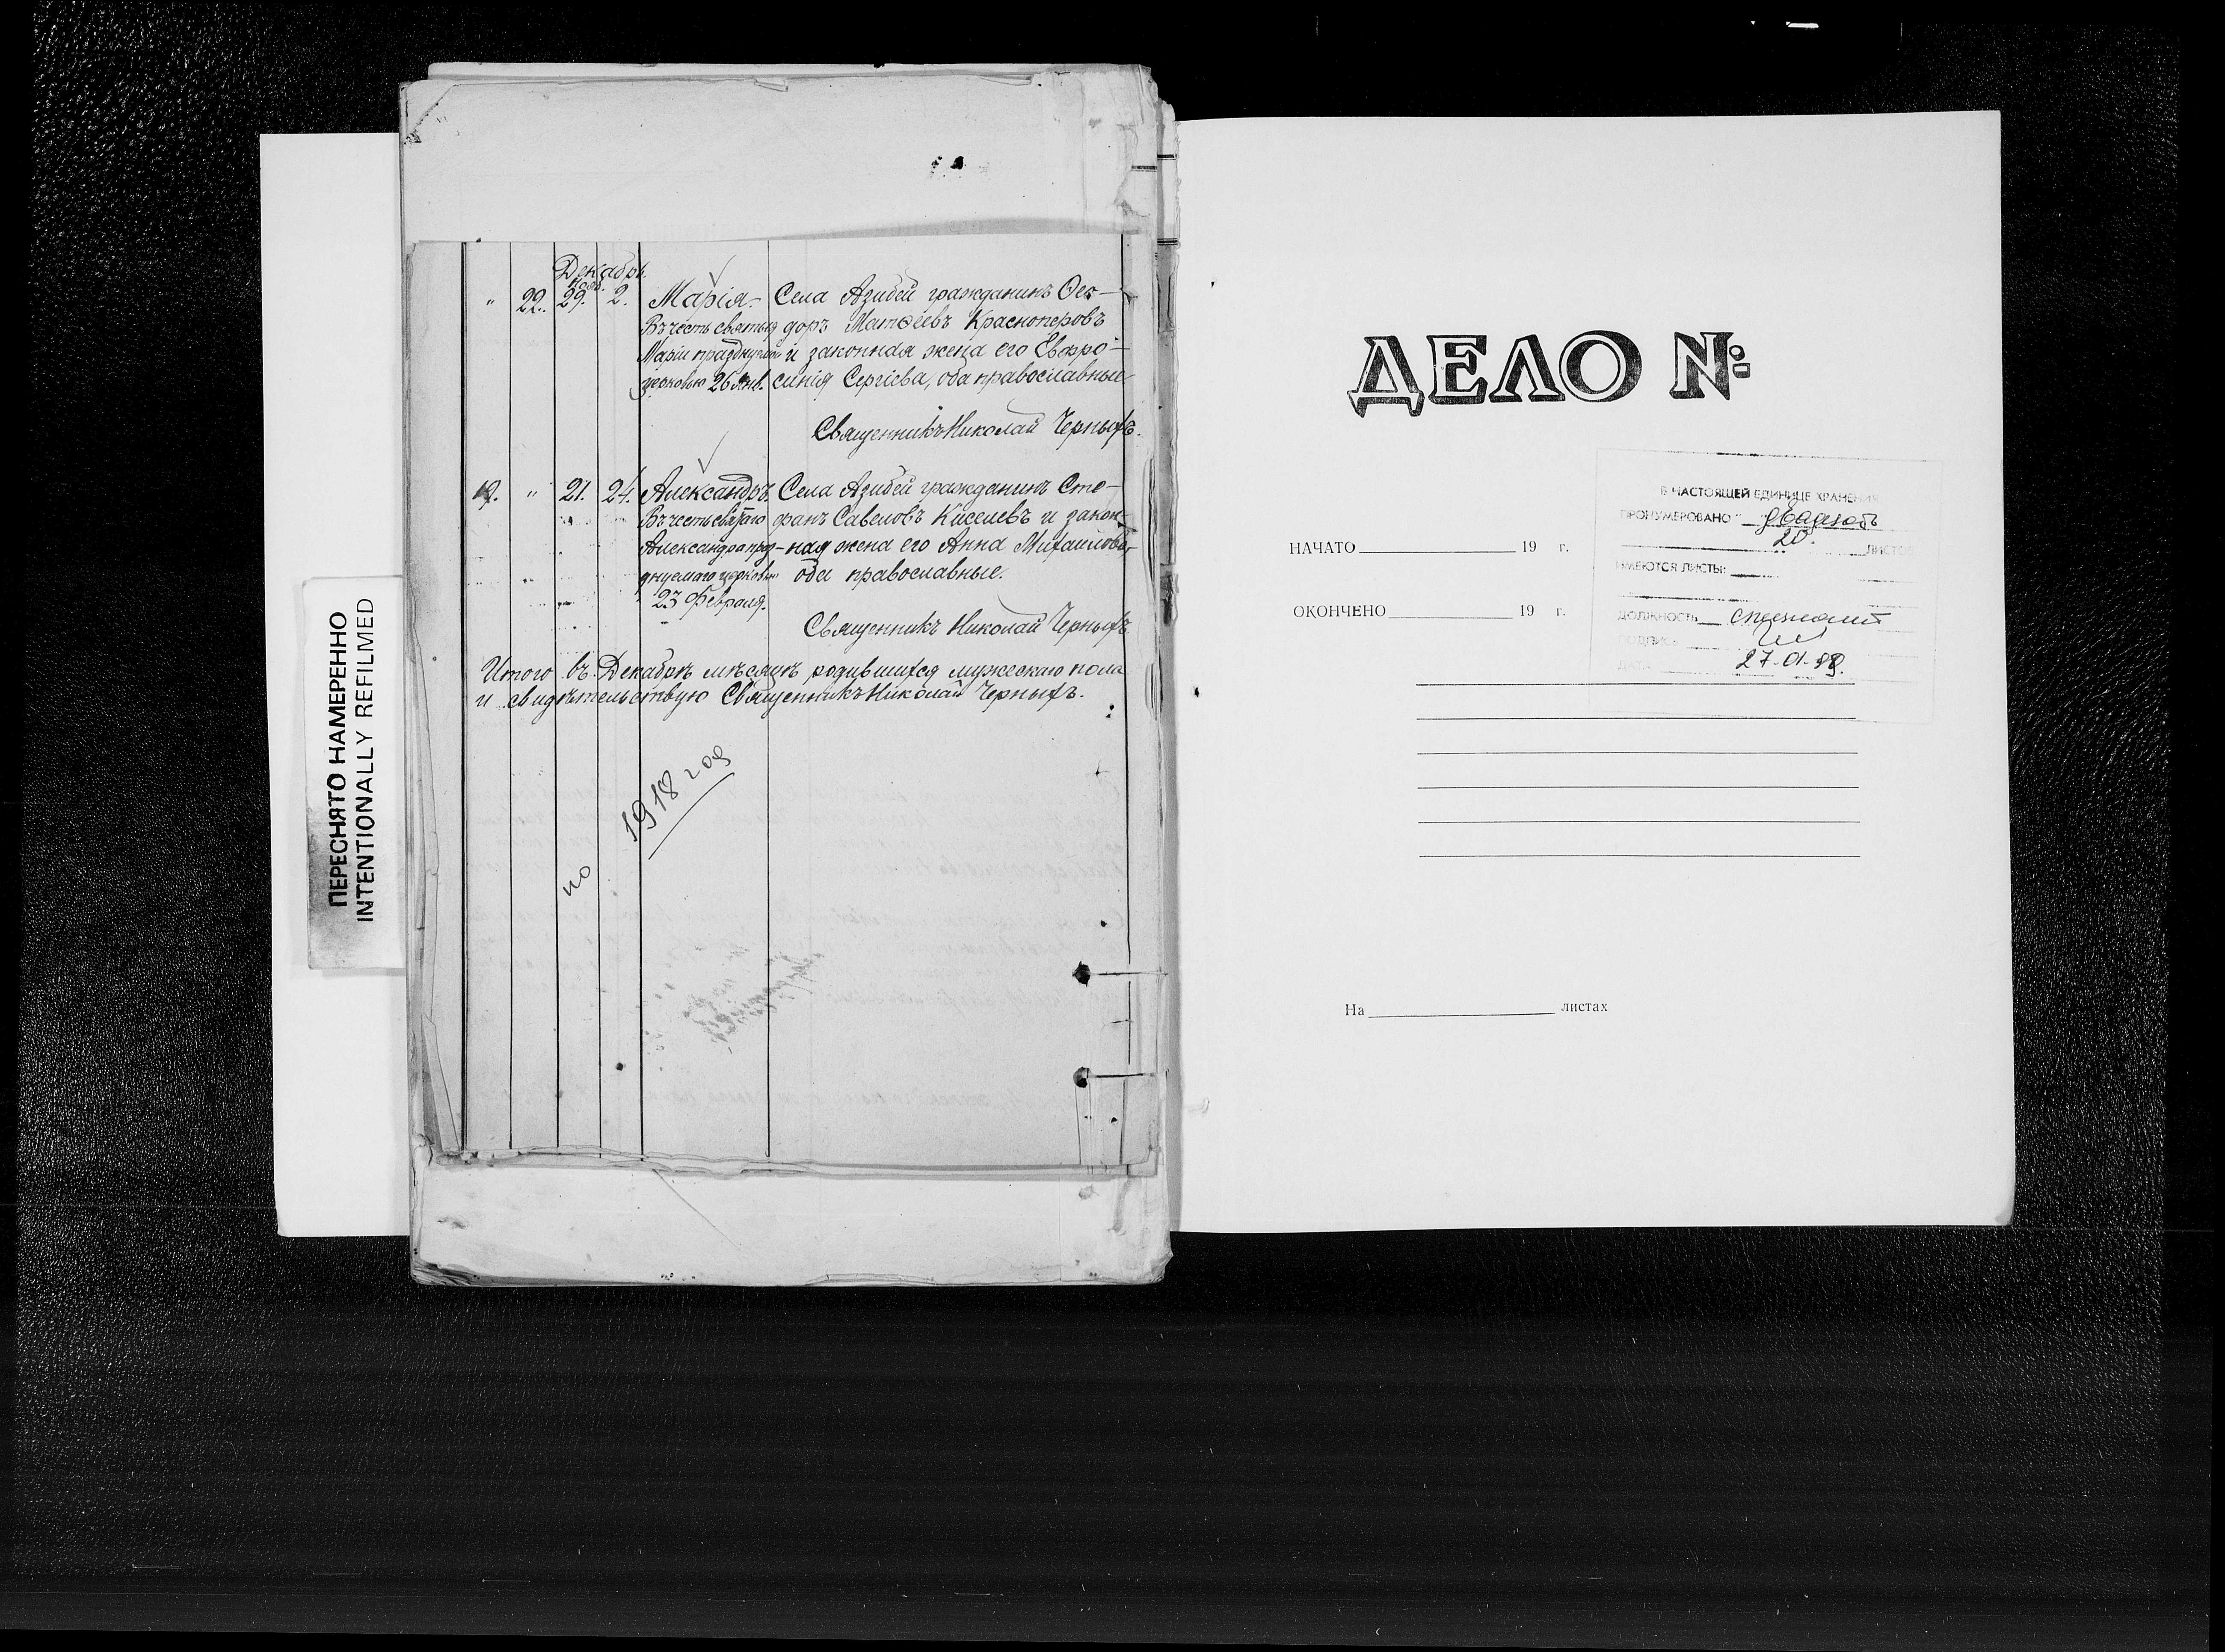 ПЕРЕСНЯТО НАМЕРЕННО
INTENTIONALLY REFILMED
Декабрь.
Нояб.
" 22. 29. 2. Марія. Села Азибей гражданинъ Ѳео-
Въ честь святыя доръ Матѳеевъ Красноперовъ
Маріи празднуемой и законная жена его Евфро-
церковію 26 Янв. синія Сергіева, оба православные
Священникъ Николай Черныхъ.
19. " 21. 24. Александръ. Села Азибей гражданинъ Сте-
Въ честь святаго фанъ Савеловъ Киселевъ и закон-
Александра праз- ная жена его Анна Михаилова,
днуемаго церковію оба православные.
23 Февраля.
Священникъ Николай Черныхъ
Итого въ Декабрѣ мѣсяцѣ родившихся мужескаго пола
и свидѣтельствую Священникъ Николай Черныхъ.
по 1918 год
ДЕЛО №
В НАСТОЯЩЕЙ ЕДИНИЦЕ ХРАНЕНИЯ
ПРОНУМЕРОВАНО двадцать
20 ЛИСТОВ
ИМЕЮТСЯ ЛИСТЫ:
ДОЛЖНОСТЬ специалист
ПОДПИСЬ
ДАТА 27-01-99.
НАЧАТО 19 г.
ОКОНЧЕНО 19 г.
На листах